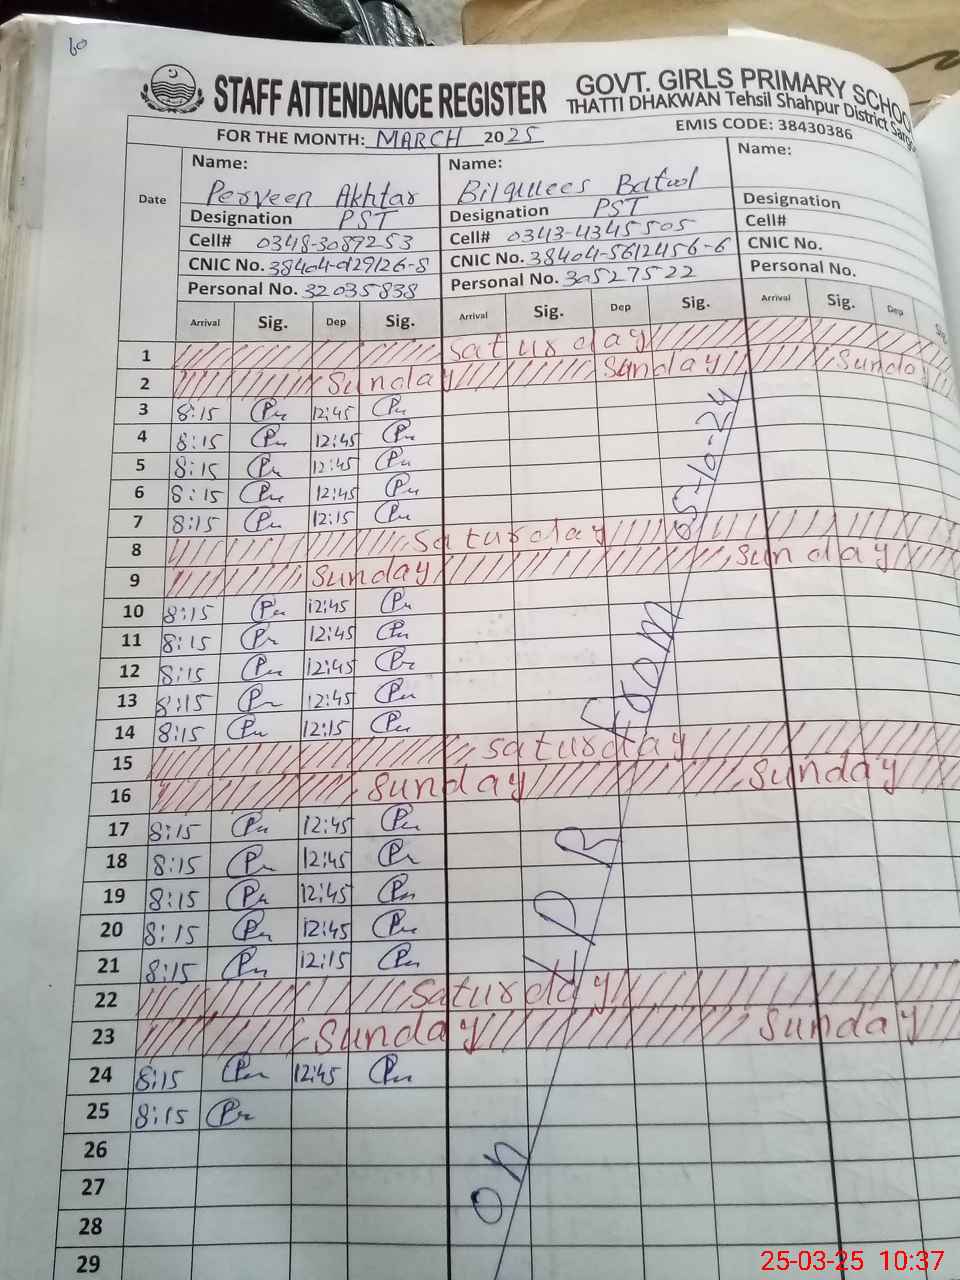 60
STAFF ATTENDANCE REGISTER GOVT. GIRLS PRIMARY SCHOOL
THATTI DHAKWAN Tehsil Shahpur District
FOR THE MONTH: MARCH 2025 EMIS CODE: 38430386
Date Name: Perveen Akhtar Name: Bilquees Batool Name:
Designation PST Designation PST Designation
Cell# 0348-3089253 Cell# 0343-4345505 Cell#
CNIC No. 38404-0129126-8 CNIC No. 38404-5612456-6 CNIC No.
Personal No. 32035838 Personal No. 30527522 Personal No.
Arrival Sig. Dep Sig. Arrival Sig. Dep Sig. Arrival Sig. Dep Sig.
1 Saturday
2 Sunday Sunday Sunday
3 8:15 12:45
4 8:15 12:45
5 8:15 12:45
6 8:15 12:45
7 8:15 12:15
8 Saturday
9 Sunday Sunday
10 8:15 12:45
11 8:15 12:45
12 8:15 12:45
13 8:15 12:45
14 8:15 12:15
15 Saturday
16 Sunday Sunday
17 8:15 12:45
18 8:15 12:45
19 8:15 12:45
20 8:15 12:45
21 8:15 12:15
22 Saturday
23 Sunday Sunday
24 8:15 12:45
25 8:15
26
27
28
29
on LPR From 05-10-24
25-03-25 10:37